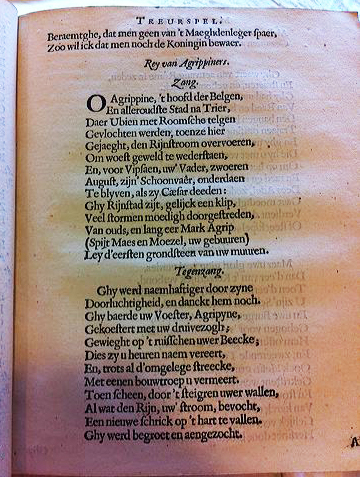 TREURSPEL.
Beraemtghe, dat men geen van 't Maeghdenleger spaer,
Zoo wil ick dat men noch de Koningin bewaer.
Rey van Agrippiners.
Zang.
O Agrippine, 't hoofd der Belgen,
En alleroudste Stad na Trier,
Daer Ubien met Roomsche telgen
Gevlochten werden, toenze hier
Gejaeght, den Rijnstroom overvoeren,
Om woest geweld te wederstaen,
En, voor Vipsaen, uw' Vader, zwoeren
August, zijn' Schoonvaêr, onderdaen
Te blyven, als zy Cæsar deeden:
Ghy Rijnstad zijt, gelijck een klip,
Veel stormen moedigh doorgestreden,
Van ouds, en lang eer Mark Agrip
(Spijt Maes en Moezel, uw gebuuren)
Ley d'eersten grondsteen van uw muuren.
Tegenzang.
Ghy werd naemhaftiger door zyne
Doorluchtigheid, en danckt hem noch.
Ghy baerde uw Voester, Agripyne,
Gekoestert met uw druivezogh;
Gewieght op 't ruisschen uwer Beecke;
Dies zy u heuren naem vereert,
En, trots al d'omgelege streecke,
Met eenen bouwtroep u vermeert.
Toen scheen, door 't steigren uwer wallen,
Al wat den Rijn, uw' stroom, bevocht,
Een nieuwe schrick op 't hart te vallen.
Ghy werd begroet en aengezocht.